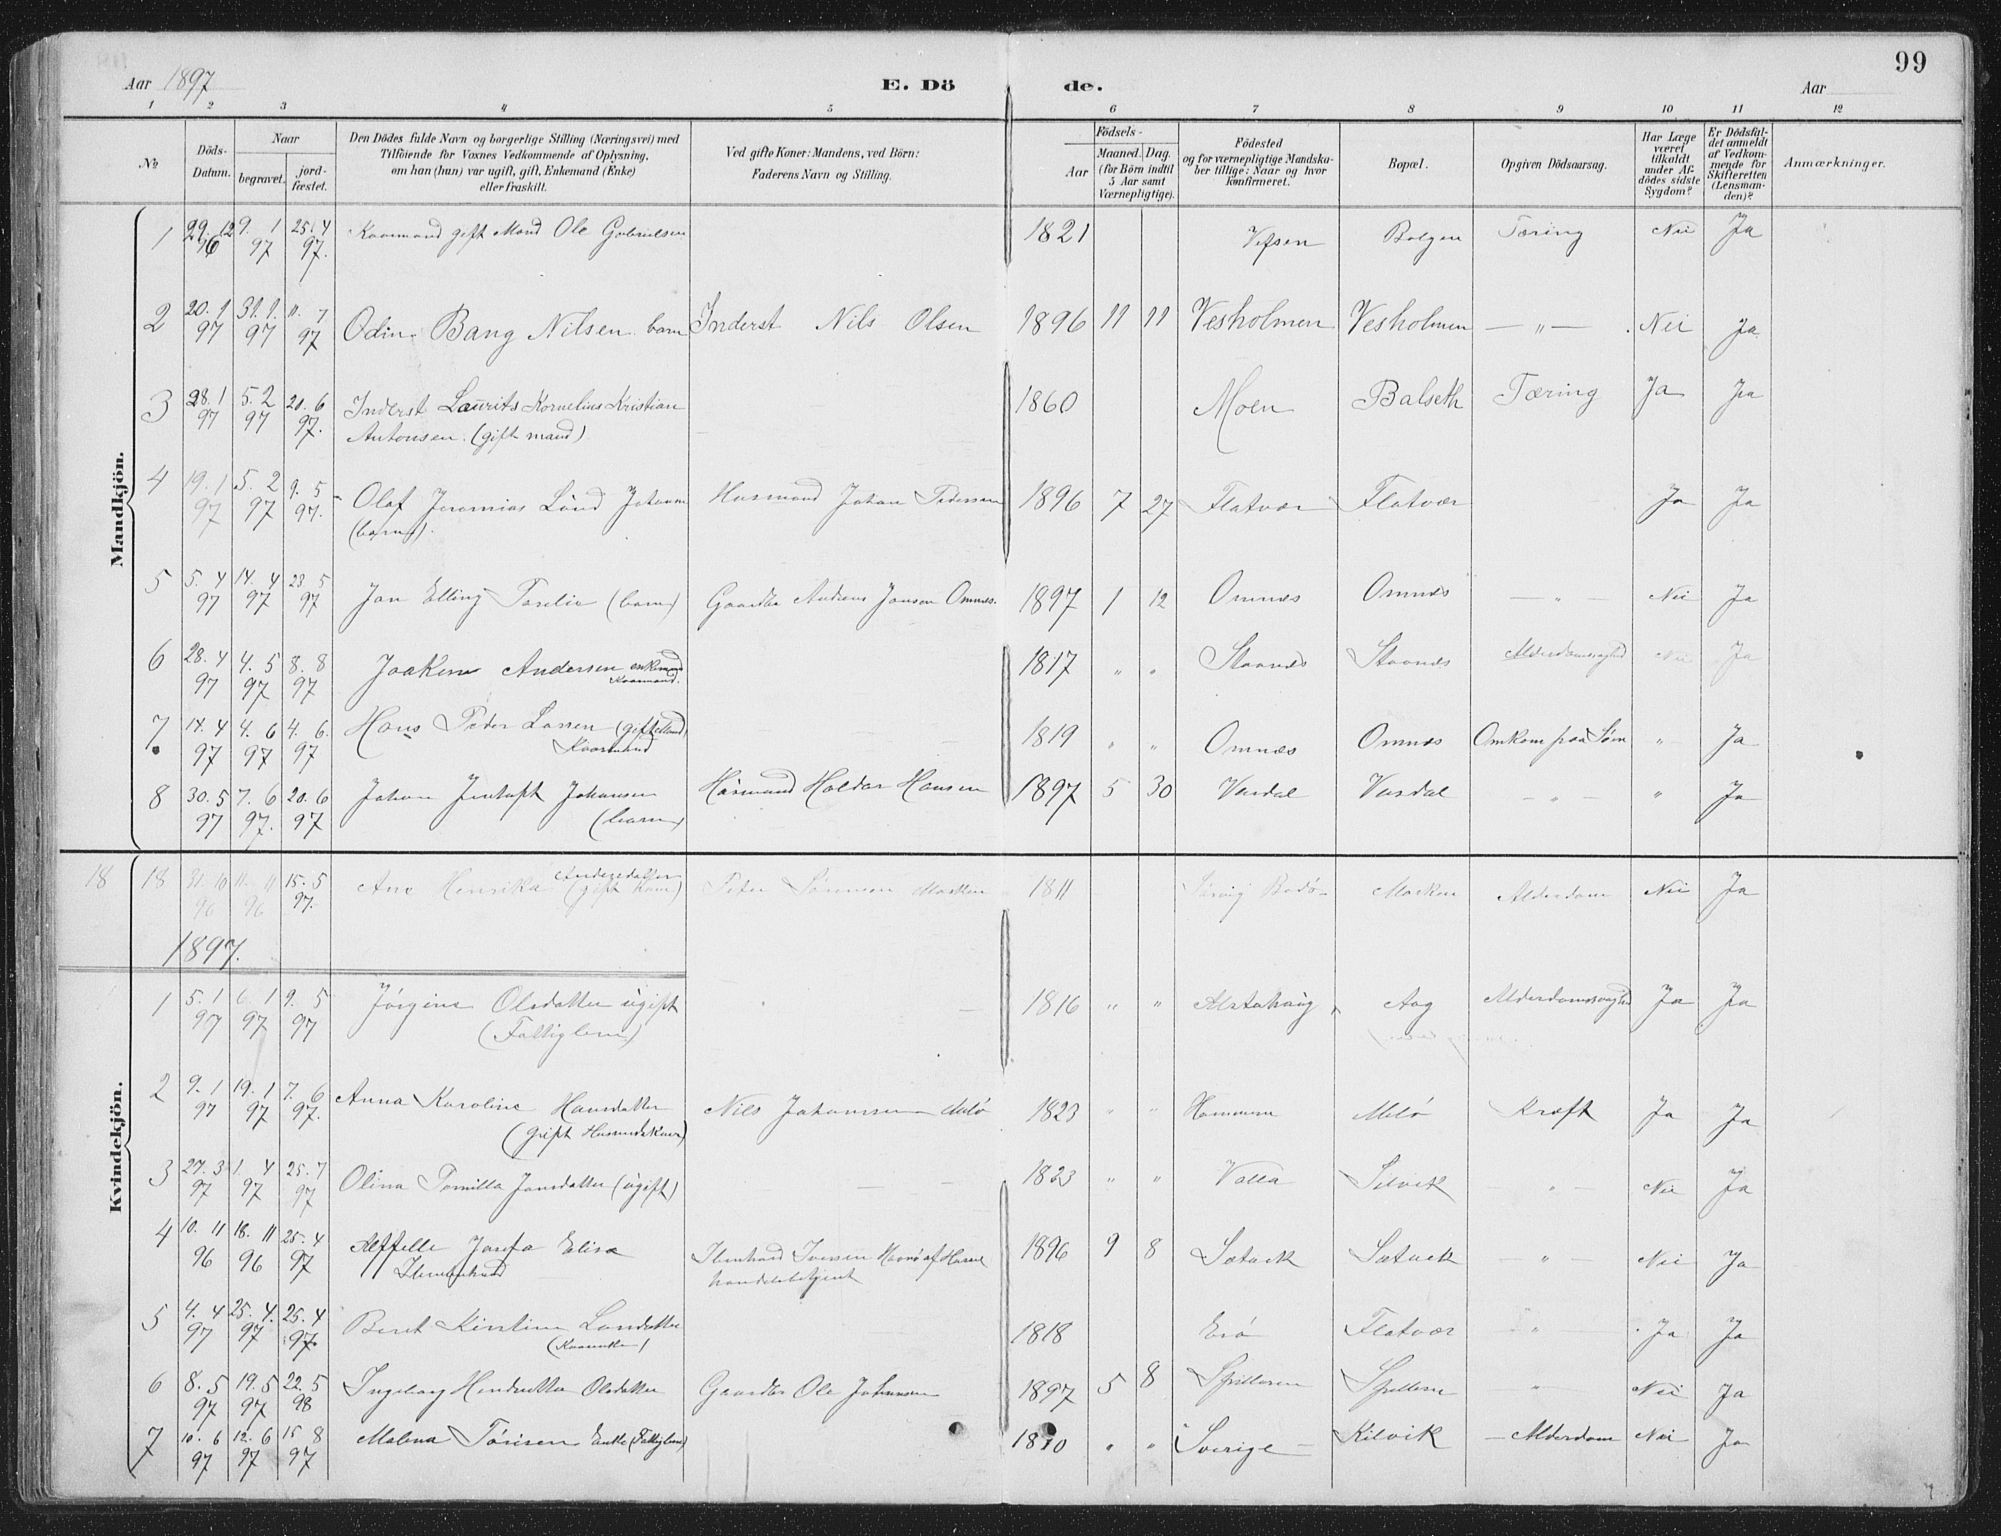 99
Aar 1897
E. Dö
de.
Aar
1 2 3 4 5 6 7 8 9 10 11 12
№
Döds-
Datum.
Naar
begravet.
jord-
fæstet.
Den Dödes fulde Navn og borgerlige Stilling (Næringsvei) med
Tilföiende for Voxnes Vedkommende af Oplysning,
om han (hun) var ugift, gift, Enkemand (Enke)
eller fraskilt.
Ved gifte Koner: Mandens, ved Börn:
Faderens Navn og Stilling.
Födsels-
Aar
Maaned. Dag.
(for Börn indtil
5 Aar samt
Værnepligtige).
Födested
og for værnepligtige Mandska-
ber tillige: Naar og hvor
konfirmeret.
Bopæl.
Opgiven Dödsaarsag.
Har Læge
været
tilkaldt
under Af-
dödes sidste
Sygdom?
Er Dödsfal-
det anmeldt
af Vedkom-
mende for
Skifteretten
(Lensman-
den)?
Anmærkninger.
Mandkjön.
1 29. 12 96 9. 1 97 25. 4 97. Kaarmand gift Mand Ole Gabrielsen 1821 Vefsen Bolgen Tæring Nei Ja
2 20. 1 97 31. 1. 97 11. 7 97 Odin Bang Nilsen barn Inderst Nils Olsen 1896 11 11 Vesholmen Vesholmen — „ — Nei Ja
3 28. 1 97 5. 2 97 20. 6 97. Inderst Laurits Kornelius Kristian 1860 Moen Balseth Tæring Ja Ja
Antonsen. (gift mand)
4 19. 1 97 5. 2 97 9. 5 97. Olaf Jeremias Lund Johan Husmand Johan Pedersen 1896 7 27 Flatvær Flatvær Ja Ja
(barn).
5 5. 4 97 14. 4 97 23 5 97 Jon Elling (barn) Gaardbr Andreas Jonsen Omnes. 1897 1 12 Omnes Omnes — „ — Nei Ja
6 28. 4 97 4. 5 97 8. 8 97 Joakim Andersen enkemand 1817 „ „ Stavnes Stavnes Alderdomssvaghed Nei Ja
Kaarmand.
7 14. 4 97 4. 6 97 4. 6. 97 Hans Peder Larsen (gift Mand) 1819 „ „ Omnes Omnes Omkom paa Søen „ Ja
Kaarmand
8 30. 5 97 7. 6 97. 20. 6 97 Johan Johansen Husmand Haldor Hansen 1897 5 30 Vardal Vardal — „ — „ Ja
(barn)
18 18 31. 10 96 11. 11 96 15. 5 97. Ane Henrika Andersdatter (gift Kone) Peter Sørensen Marken 1811 Bodø Marken Alderdom Nei Ja
1897.
Kvindekjön.
1 5. 1 97 6. 1 97 9. 5 97 Jørgine Olsdatter ugift 1816 „ „ Alstahaug Aag Alderdomssvaghed Ja Ja
(Fattiglem)
2 9. 1 97 19. 1 97 7. 6 97. Anna Karoline Hansdatter Nils Johansen Melø 1823 „ „ Hammern Melø Kræft Ja Ja
(gift Husmdskone)
3 27. 3 97 1. 4 97 25. 7 97 Olina Pernilla Jonsdatter (ugift) 1823 „ „ Valla Selvik — „ — Nei Ja
4 10. 11 96 18. 11 96 25. 4 97 Josefa Elisa 1896 9 8 Sætvik Sætvik „ Nei Ja
Iversen
handelsbetjent
5 4. 4 97 25. 4. 97 25. 4 97. Beret Kirstine Larsdatter 1818 Esø Flatvær „ Ja Ja
(Kaarenke)
6 8. 5 97 19. 5 97 22. 5 98 Ingeborg Hendrikke Olsdatter Gaardbr Ole Johansen 1897 5 8 Spilderen Spilderen „ Nei Ja
7 10. 6 97 12. 6 97 15 8 97 Malena Tørisen Enke (Fattiglem) 1810 „ „ Sverige Kilvik Alderdom Nei Ja